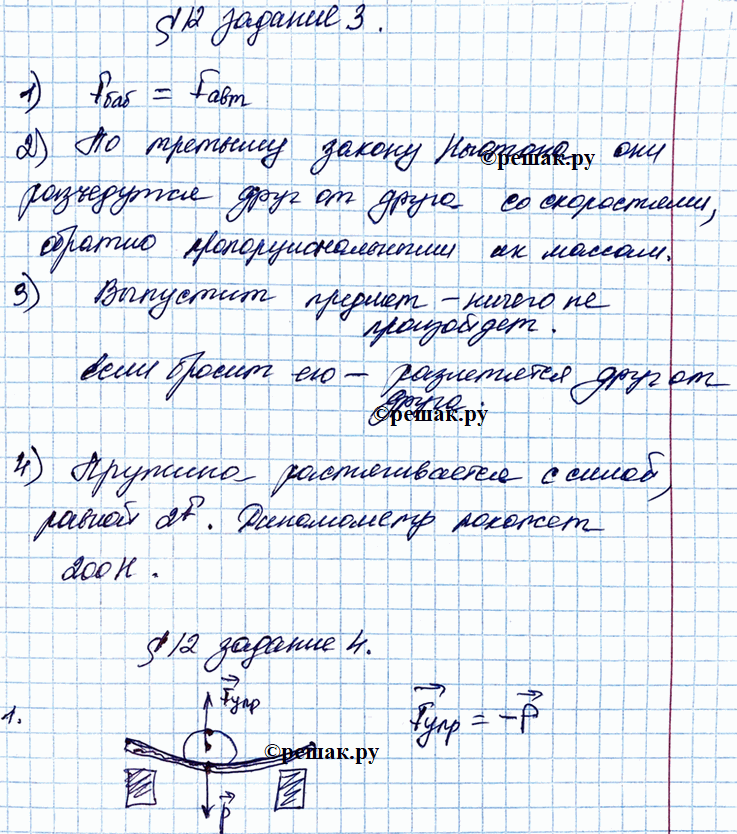 §12 задание 3.
1) Fбаб = Fавт
2) По третьему закону Ньютона они
разъедутся друг от друга со скоростями,
обратно пропорциональными их массам.
3) Выпустит предмет – ничего не
произойдет.
если бросит его – разлетятся друг от
друга.
©решак.ру
4) Пружина растягивается с силой,
равной 2F. Динамометр покажет
200 Н.
§12 задание 4.
1. F⃗упр
F⃗упр = -P⃗
©решак.ру
P⃗